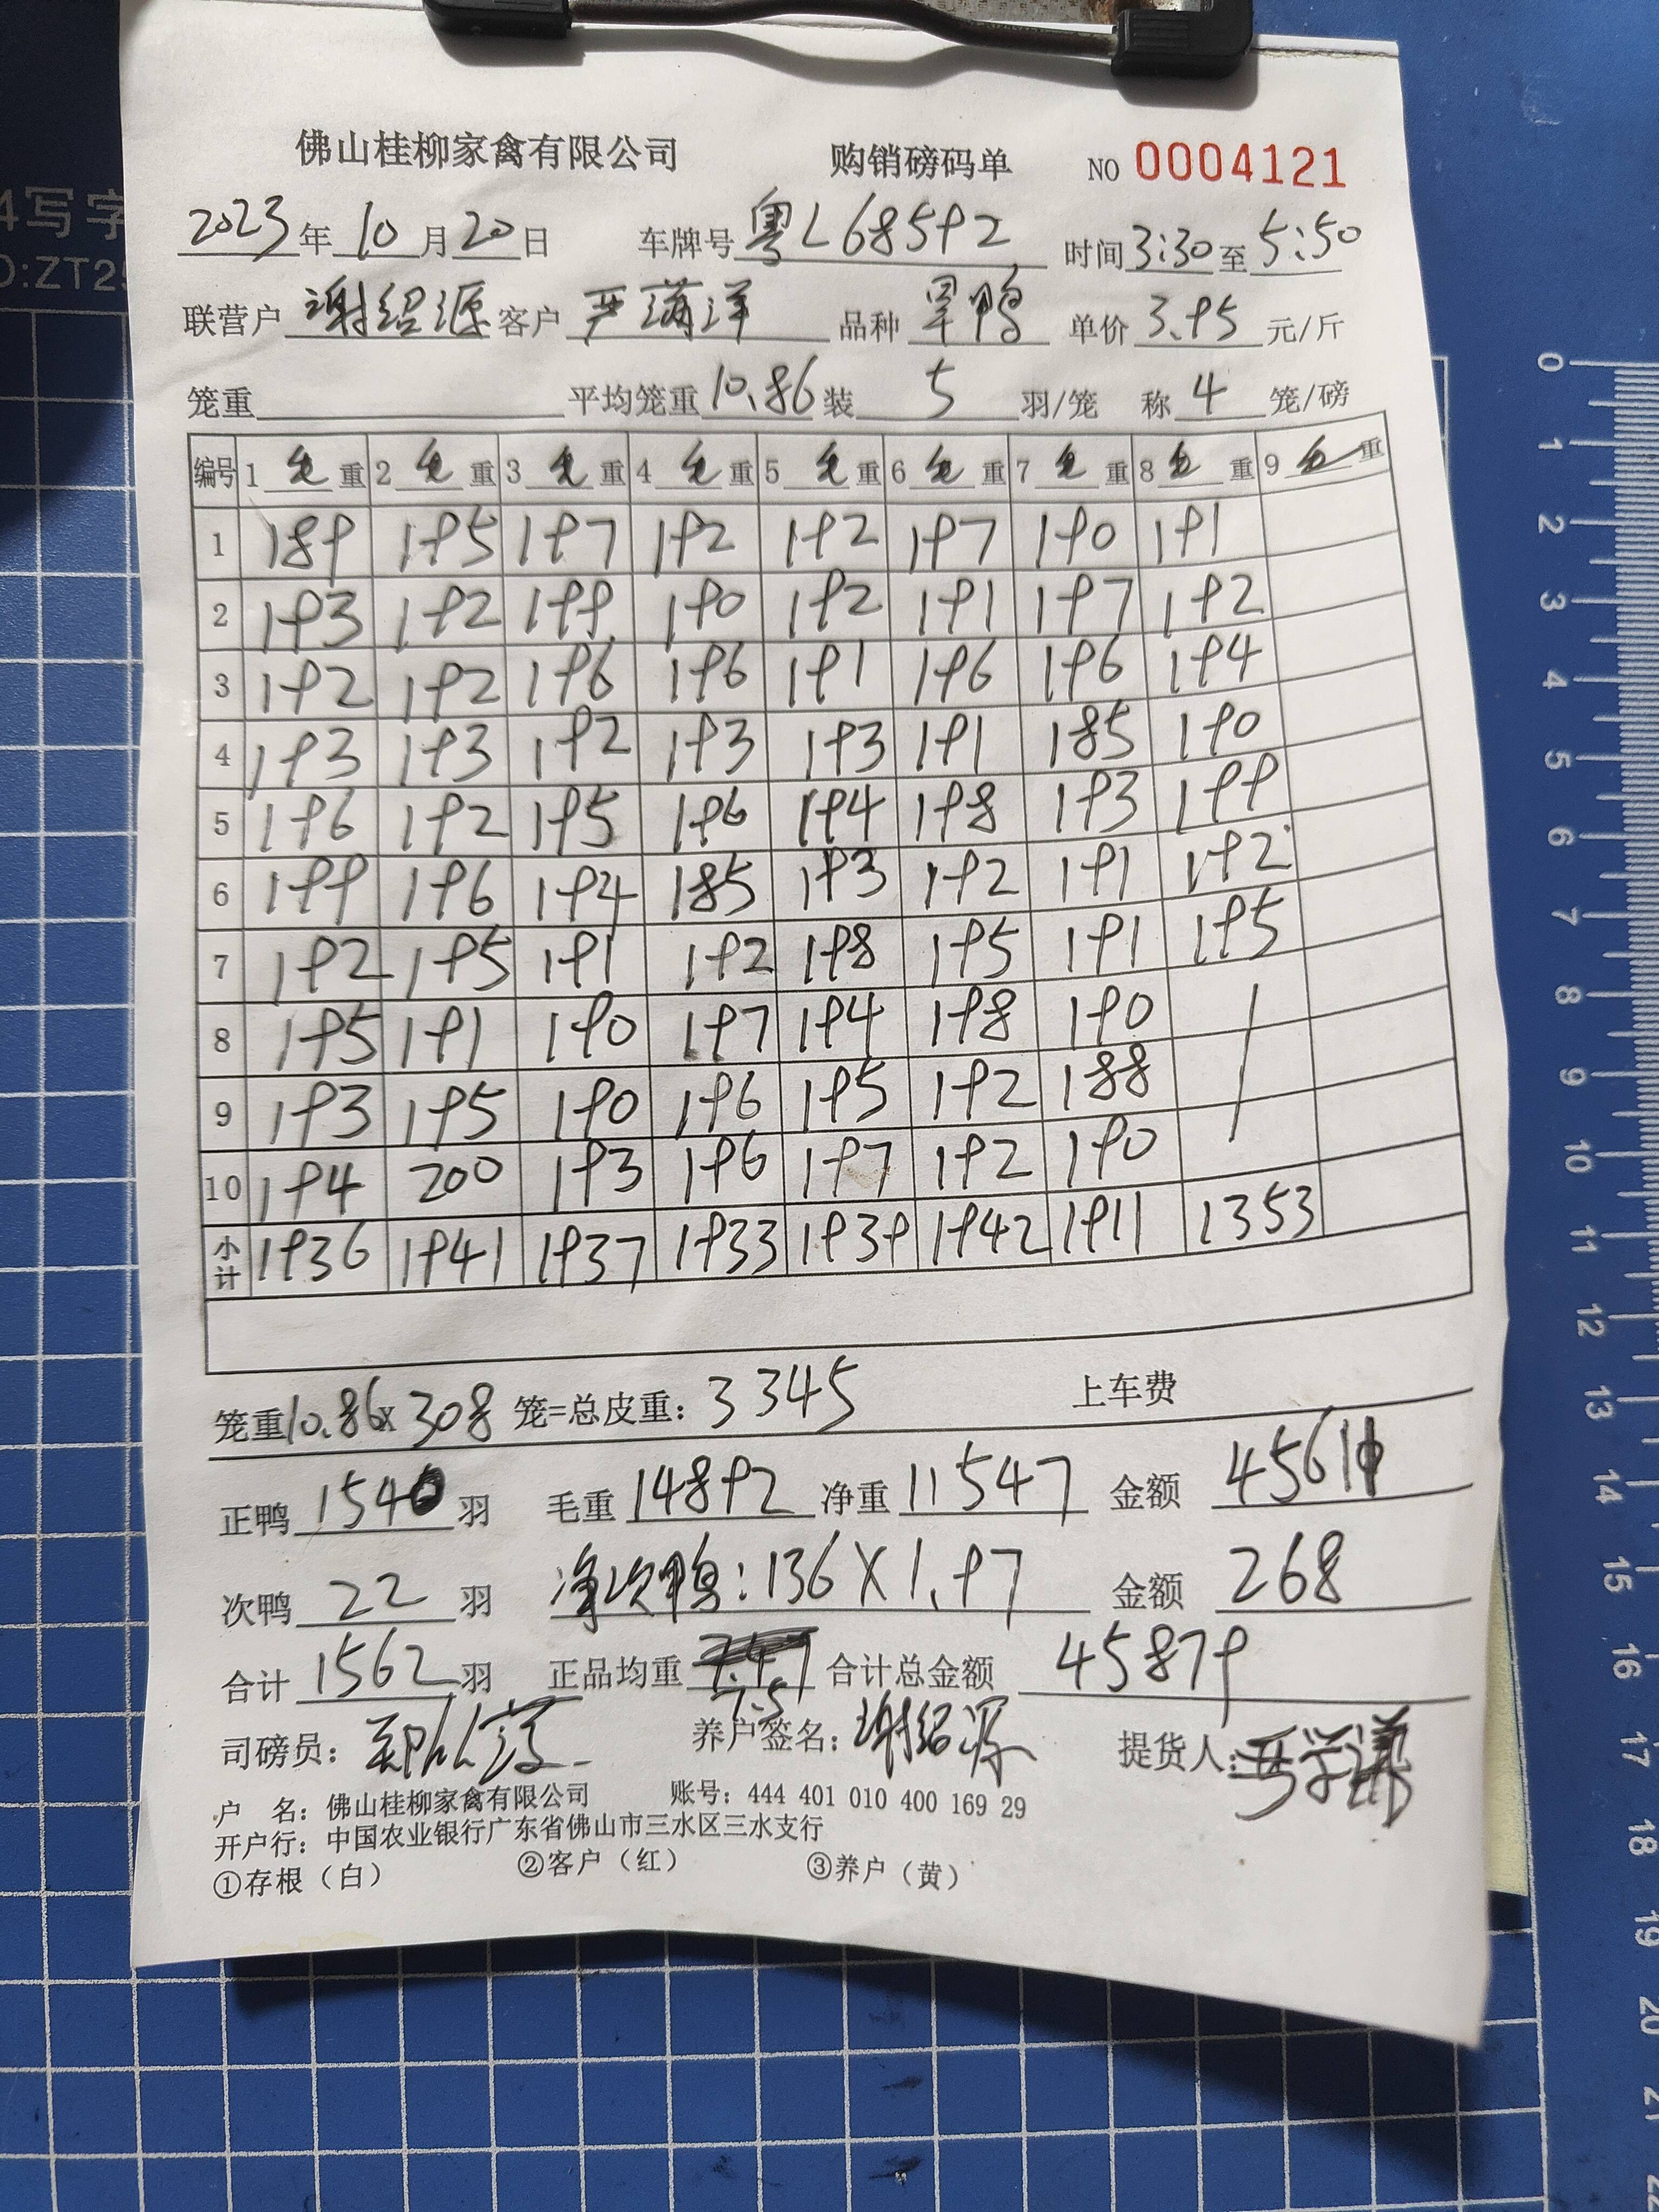 4写字
D:ZT25
佛山桂柳家禽有限公司 购销磅码单 NO 0004121
2023年10月20日 车牌号粤L68592 时间3:30至5:50
联营户谢绍源客户严满洋 品种旱鸭 单价3.95元/斤
笼重 平均笼重10.86装5羽/笼 称4笼/磅
编号 1毛重 2毛重 3毛重 4毛重 5毛重 6毛重 7毛重 8毛重 9毛重
1 189 195 197 192 192 197 190 191
2 193 192 199 190 192 191 197 192
3 192 192 196 196 191 196 196 194
4 193 193 192 193 193 191 185 190
5 196 192 195 196 194 198 193 199
6 199 196 194 185 193 192 191 192
7 192 195 191 192 198 195 191 195
8 195 191 190 197 194 198 190
9 193 195 190 196 195 192 188
10 194 200 193 196 197 192 190
小计 1936 1941 1937 1933 1939 1942 1911 1353
笼重10.86x308笼=总皮重：3345 上车费
正鸭1540羽 毛重14892 净重11547 金额45611
次鸭22羽 净次鸭：136X1.97 金额268
合计1562羽 正品均重7.5 合计总金额45879
司磅员： 养户签名：谢绍源 提货人：
户 名：佛山桂柳家禽有限公司 账号：444 401 010 400 169 29
开户行：中国农业银行广东省佛山市三水区三水支行
①存根（白） ②客户（红） ③养户（黄）
0
1
2
3
4
5
6
7
8
9
10
11
12
13
14
15
16
17
18
19
20
21
22